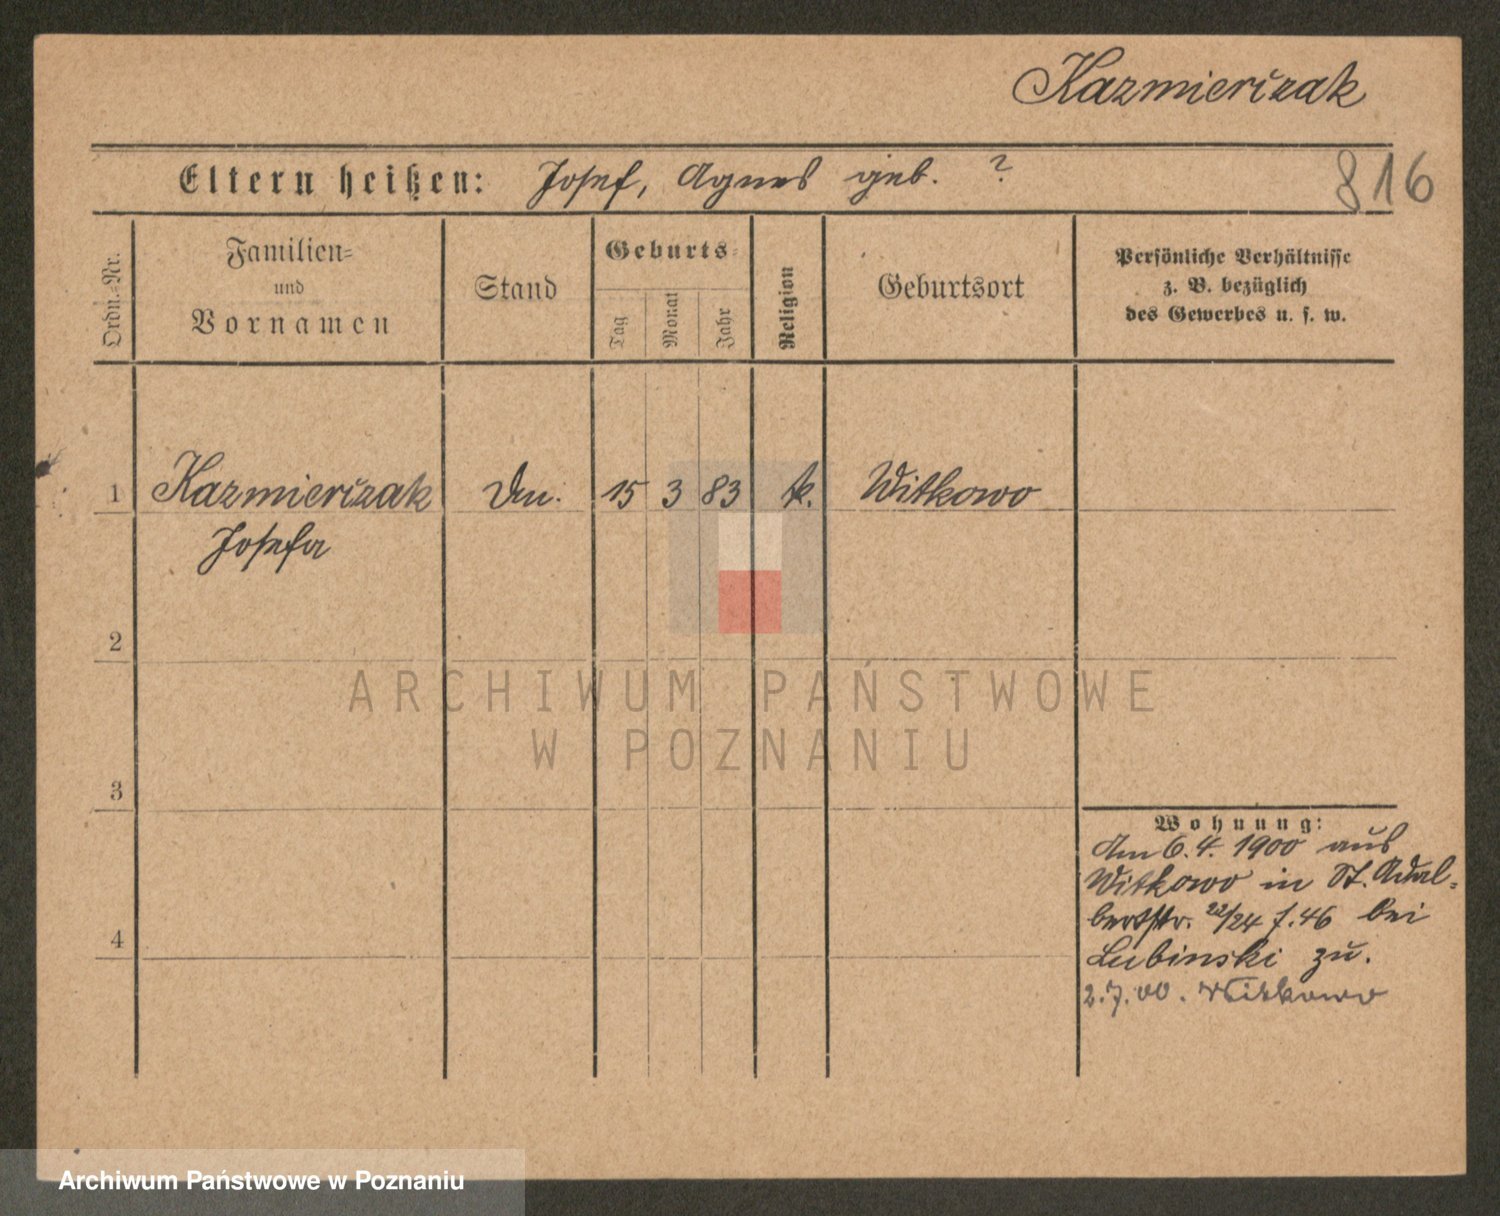 Kazmierczak
Eltern heißen: Josef, Agnes geb. ?
816
Ordn.-Nr.
Familien-
und
Vornamen
Stand
Geburts-
Tag
Monat
Jahr
Religion
Geburtsort
Persönliche Verhältnisse
z. B. bezüglich
des Gewerbes u. s. w.
1 Kazmierczak 15 3 83 k. Witkowo
Josefa
2
3
4
Wohnung:
Am 6.4. 1900 aus
Witkowo in St. Adal-
bertstr. 22/24 f. 46 bei
Lubinski zu.
2.7.00. Witkowo
ARCHIWUM PAŃSTWOWE
W POZNANIU
Archiwum Państwowe w Poznaniu